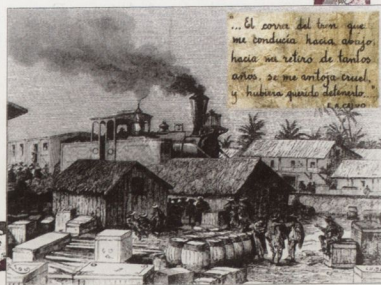 "... El correr del tren que
me conducía hacia abajo,
hacia mi retiro de tantos
años, se me antoja cruel,
y hubiera querido detenerlo."